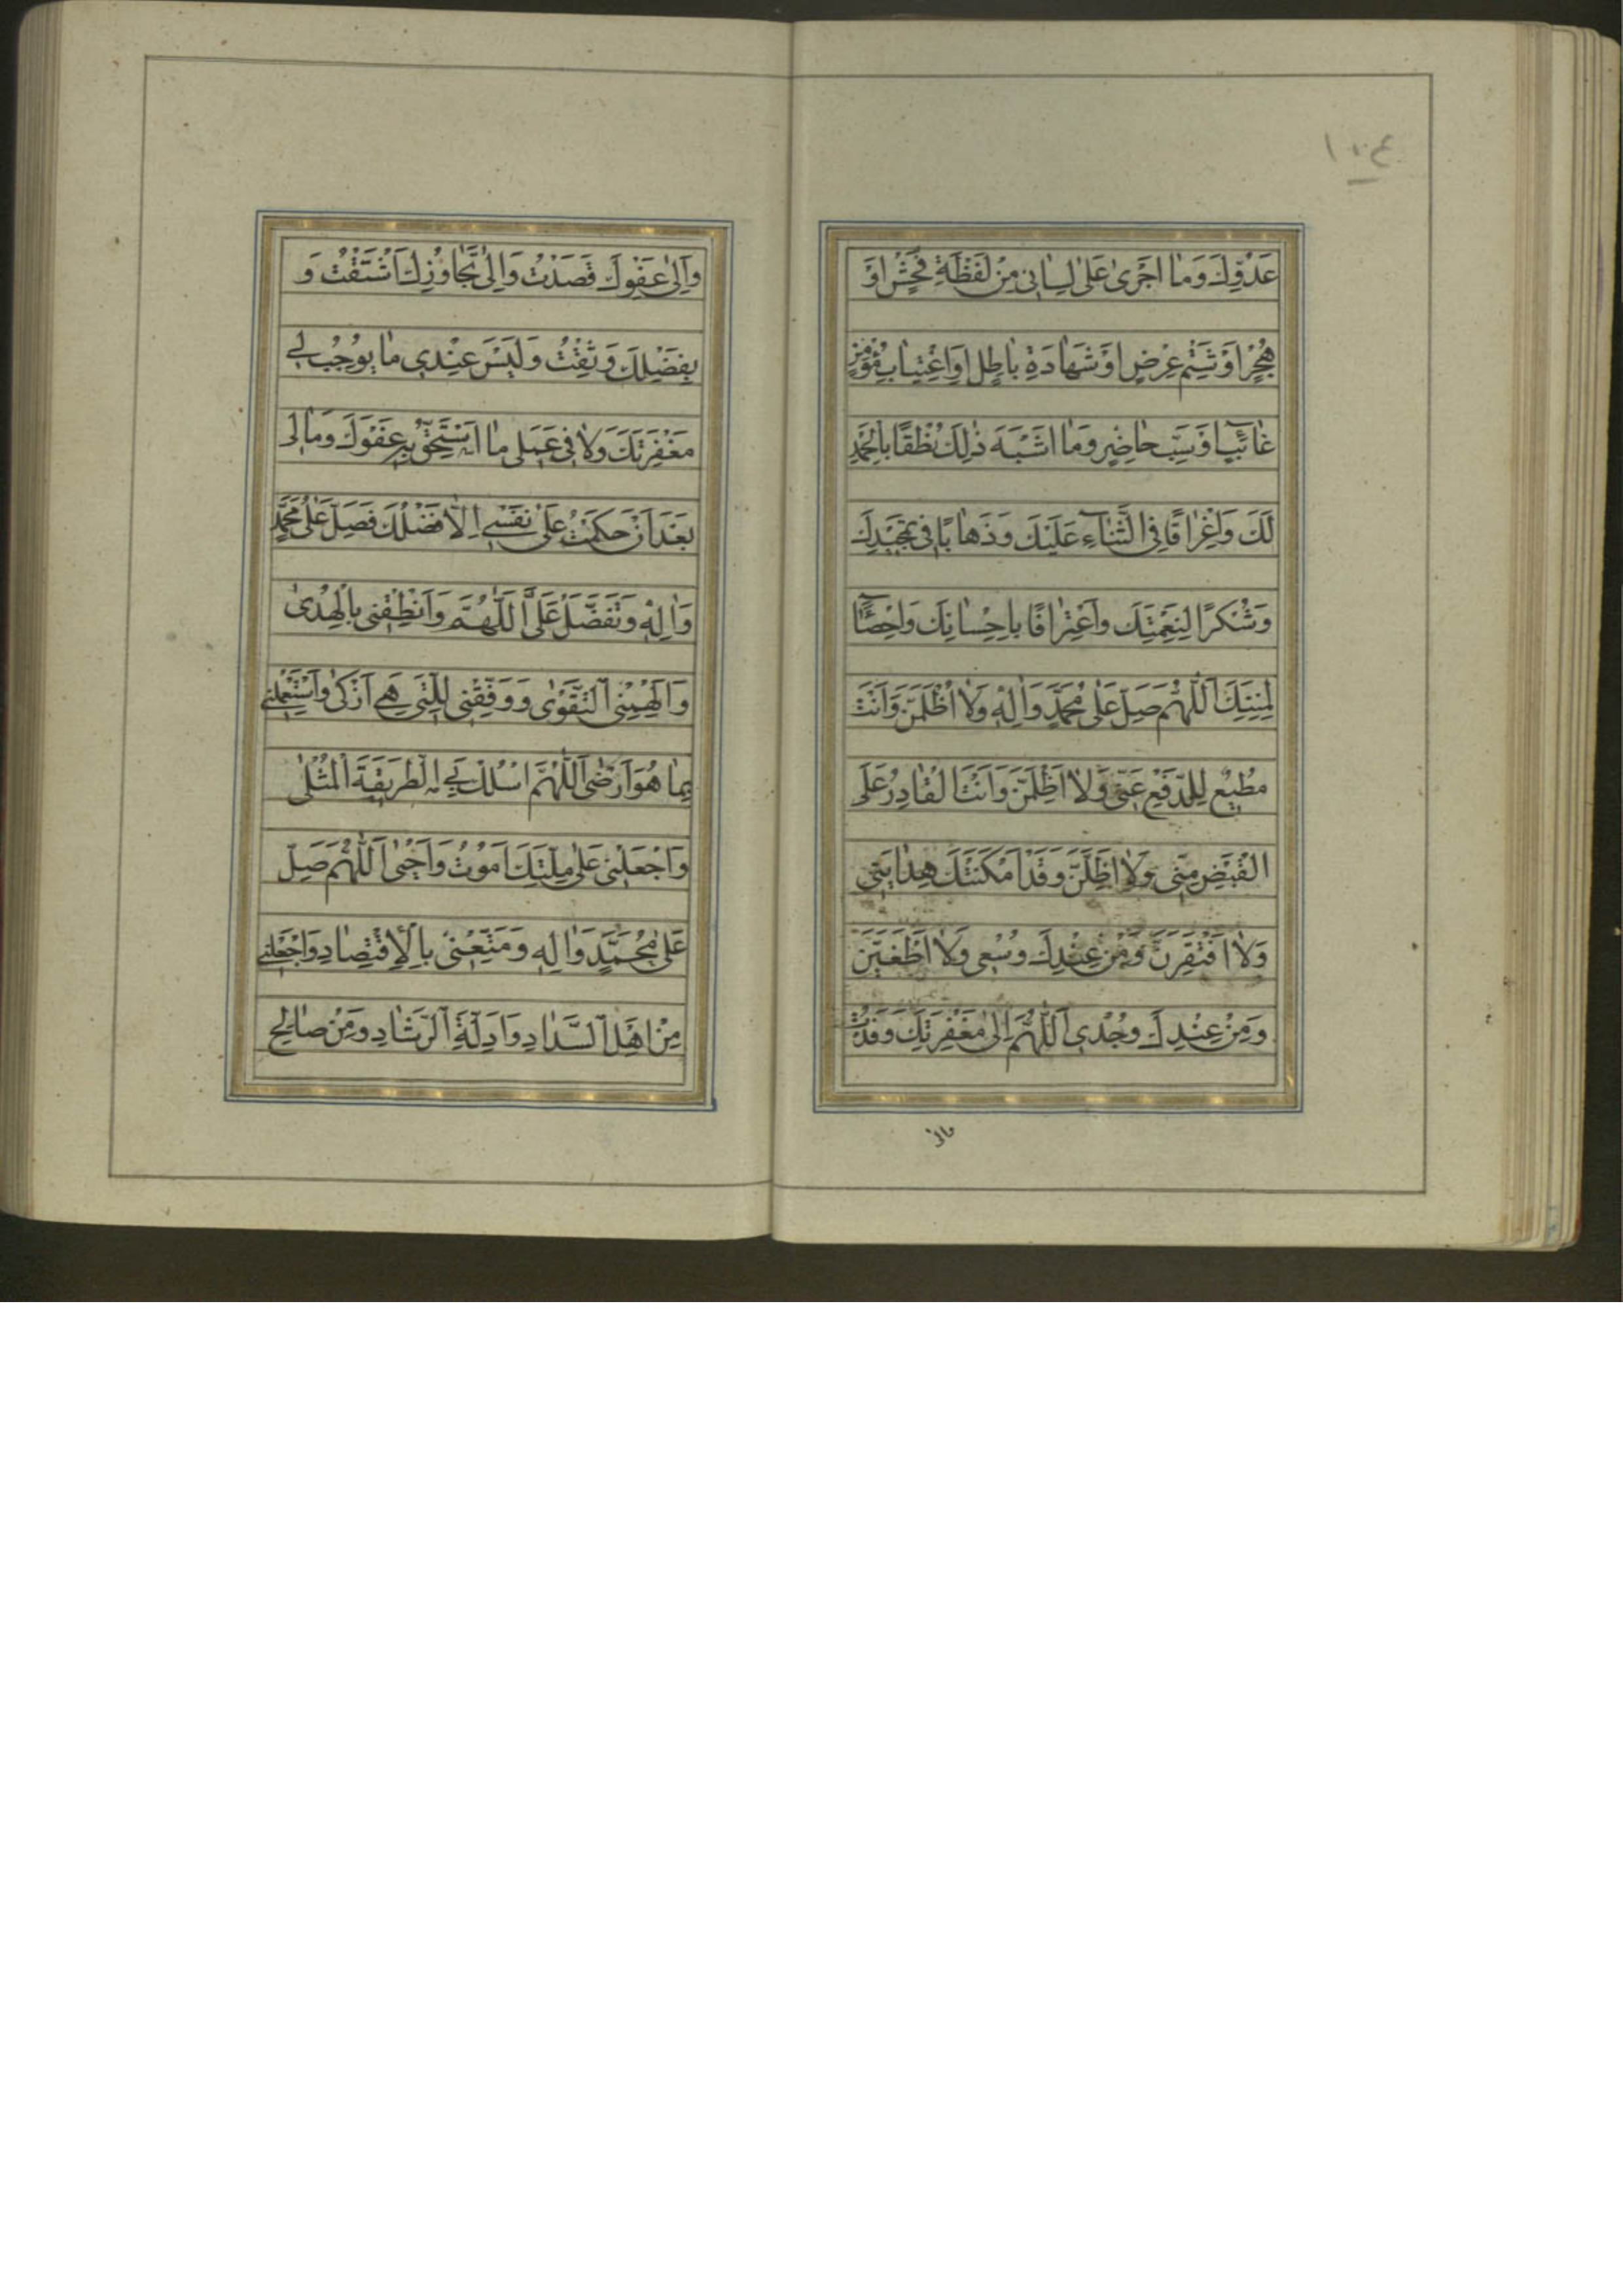 ١٠٤
عَدُوِّكَ وَمٰا اَجْرىٰ عَلىٰ لِسٰانى مِنْ لَفْظَةِ فُحْشٍ اَوْ
هُجْرٍ اَوْ شَتْمِ عِرْضٍ اَوْ شَهٰادَةِ بٰاطِلٍ اَوِ اغْتِيٰابِ مُؤْمِنٍ
غٰائِبٍ اَوْ سَبِّ حٰاضِرٍ وَمٰا اَشْبَهَ ذٰلِكَ نُطْقًا بِالْحَمْدِ
لَكَ وَاِغْرٰاقًا فِى الثَّنٰاءِ عَلَيْكَ وَذَهٰابًا فى تَمْجيدِكَ
وَشُكْرًا لِنِعْمَتِكَ وَاعْتِرٰافًا بِاِحْسٰانِكَ وَاِحْصٰاءً
لِمِنَنِكَ اَللّٰهُمَّ صَلِّ عَلىٰ مُحَمَّدٍ وَاٰلِهِ وَلٰا اُظْلَمَنَّ وَاَنْتَ
مُطيعٌ لِلدَّفْعِ عَنّى وَلٰا اَظْلِمَنَّ وَاَنْتَ الْقٰادِرُ عَلَى
الْقَبْضِ مِنّى وَلٰا اَضِلَّنَّ وَقَدْ اَمْكَنَتْكَ هِدٰايَتى
وَلٰا اَفْتَقِرَنَّ وَمِنْ عِنْدِكَ وُسْعى وَلٰا اَطْغَيَنَّ
وَمِنْ عِنْدِكَ وُجْدى اَللّٰهُمَّ اِلىٰ مَغْفِرَتِكَ وَفَدْتُ
وَاِلىٰ عَفْوِكَ قَصَدْتُ وَاِلىٰ تَجٰاوُزِكَ اشْتَقْتُ وَ
بِفَضْلِكَ وَثِقْتُ وَلَيْسَ عِنْدى مٰا يُوجِبُ لى
مَغْفِرَتَكَ وَلٰا فى عَمَلى مٰا اَسْتَحِقُّ بِهِ عَفْوَكَ وَمٰا لى
بَعْدَ اَنْ حَكَمْتُ عَلىٰ نَفْسى اِلّٰا فَضْلُكَ فَصَلِّ عَلىٰ مُحَمَّدٍ
وَاٰلِهِ وَتَفَضَّلْ عَلَىَّ اَللّٰهُمَّ وَاَنْطِقْنى بِالْهُدىٰ
وَاَلْهِمْنِى التَّقْوىٰ وَوَفِّقْنى لِلَّتى هِىَ اَزْكىٰ وَاسْتَعْمِلْنى
بِمٰا هُوَ اَرْضىٰ اَللّٰهُمَّ اسْلُكْ بِىَ الطَّريقَةَ الْمُثْلىٰ
وَاجْعَلْنى عَلىٰ مِلَّتِكَ اَمُوتُ وَاَحْيىٰ اَللّٰهُمَّ صَلِّ
عَلىٰ مُحَمَّدٍ وَاٰلِهِ وَمَتِّعْنى بِالْاِقْتِصٰادِ وَاجْعَلْنى
مِنْ اَهْلِ السَّدٰادِ وَاَدِلَّةِ الرَّشٰادِ وَمِنْ صٰالِحِ